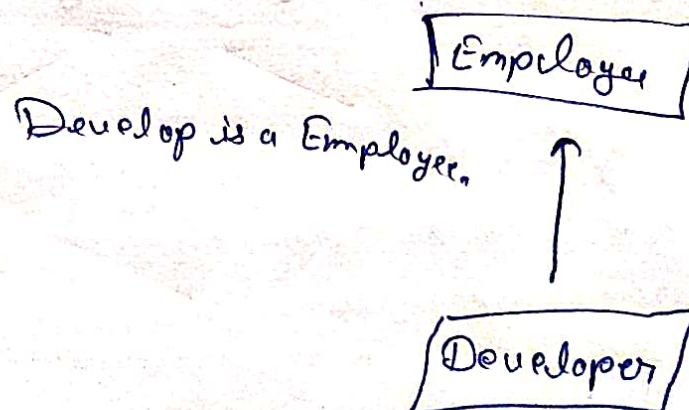 Employee
Develop is a Employee.
Developer